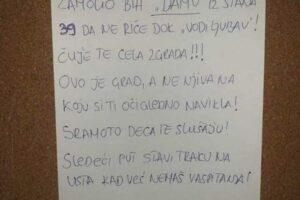 ZAMOLIO BIH „DAMU" IZ STANA
39 DA NE RIČE DOK „VODI LJUBAV"!
ČUJE TE CELA ZGRADA!!!
OVO JE GRAD, A NE NJIVA NA
KOJU SI TI OČIGLEDNO NAVIKLA!
SRAMOTO DECA TE SLUŠAJU!
SLEDEĆI PUT STAVI TRAKU NA
USTA KAD VEĆ NEMAŠ VASPITANJA!